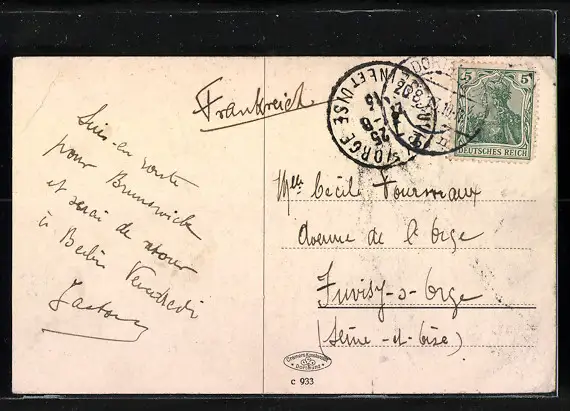 Suis en route
pour Brunswick
et serai de retour
à Berlin Vendredi
Gaston
Frankreich.
5 5
DEUTSCHES REICH
25 -8
13
ORGE
SEINE ET OISE
DORT
Mlle Cécile Fourneaux
Avenue de l'Orge
Juvisy-s-Orge
(Seine-et-Oise)
Dortmund
c 933